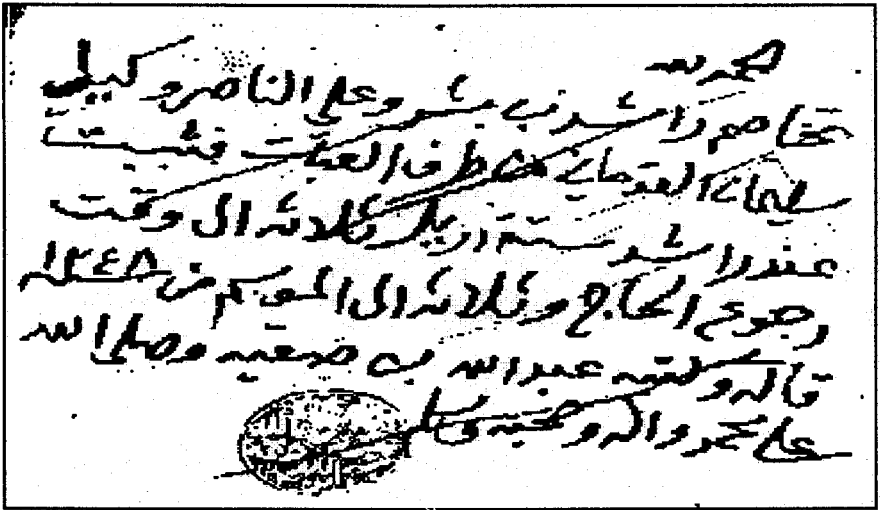 الحمد لله
تخاصم راشد بن بشر وعلي الناصر وكيل
سليمان العقد طرف العبات فثبت
عند راشد ستة اريل ثلاثه الى وقت
رجوع الحاج وثلاثه الى الموسم من سنة ١٢٤٨
قاله وكتبه عبدالله بن صعيه وصلى الله
على محمد واله وصحبه وسلم